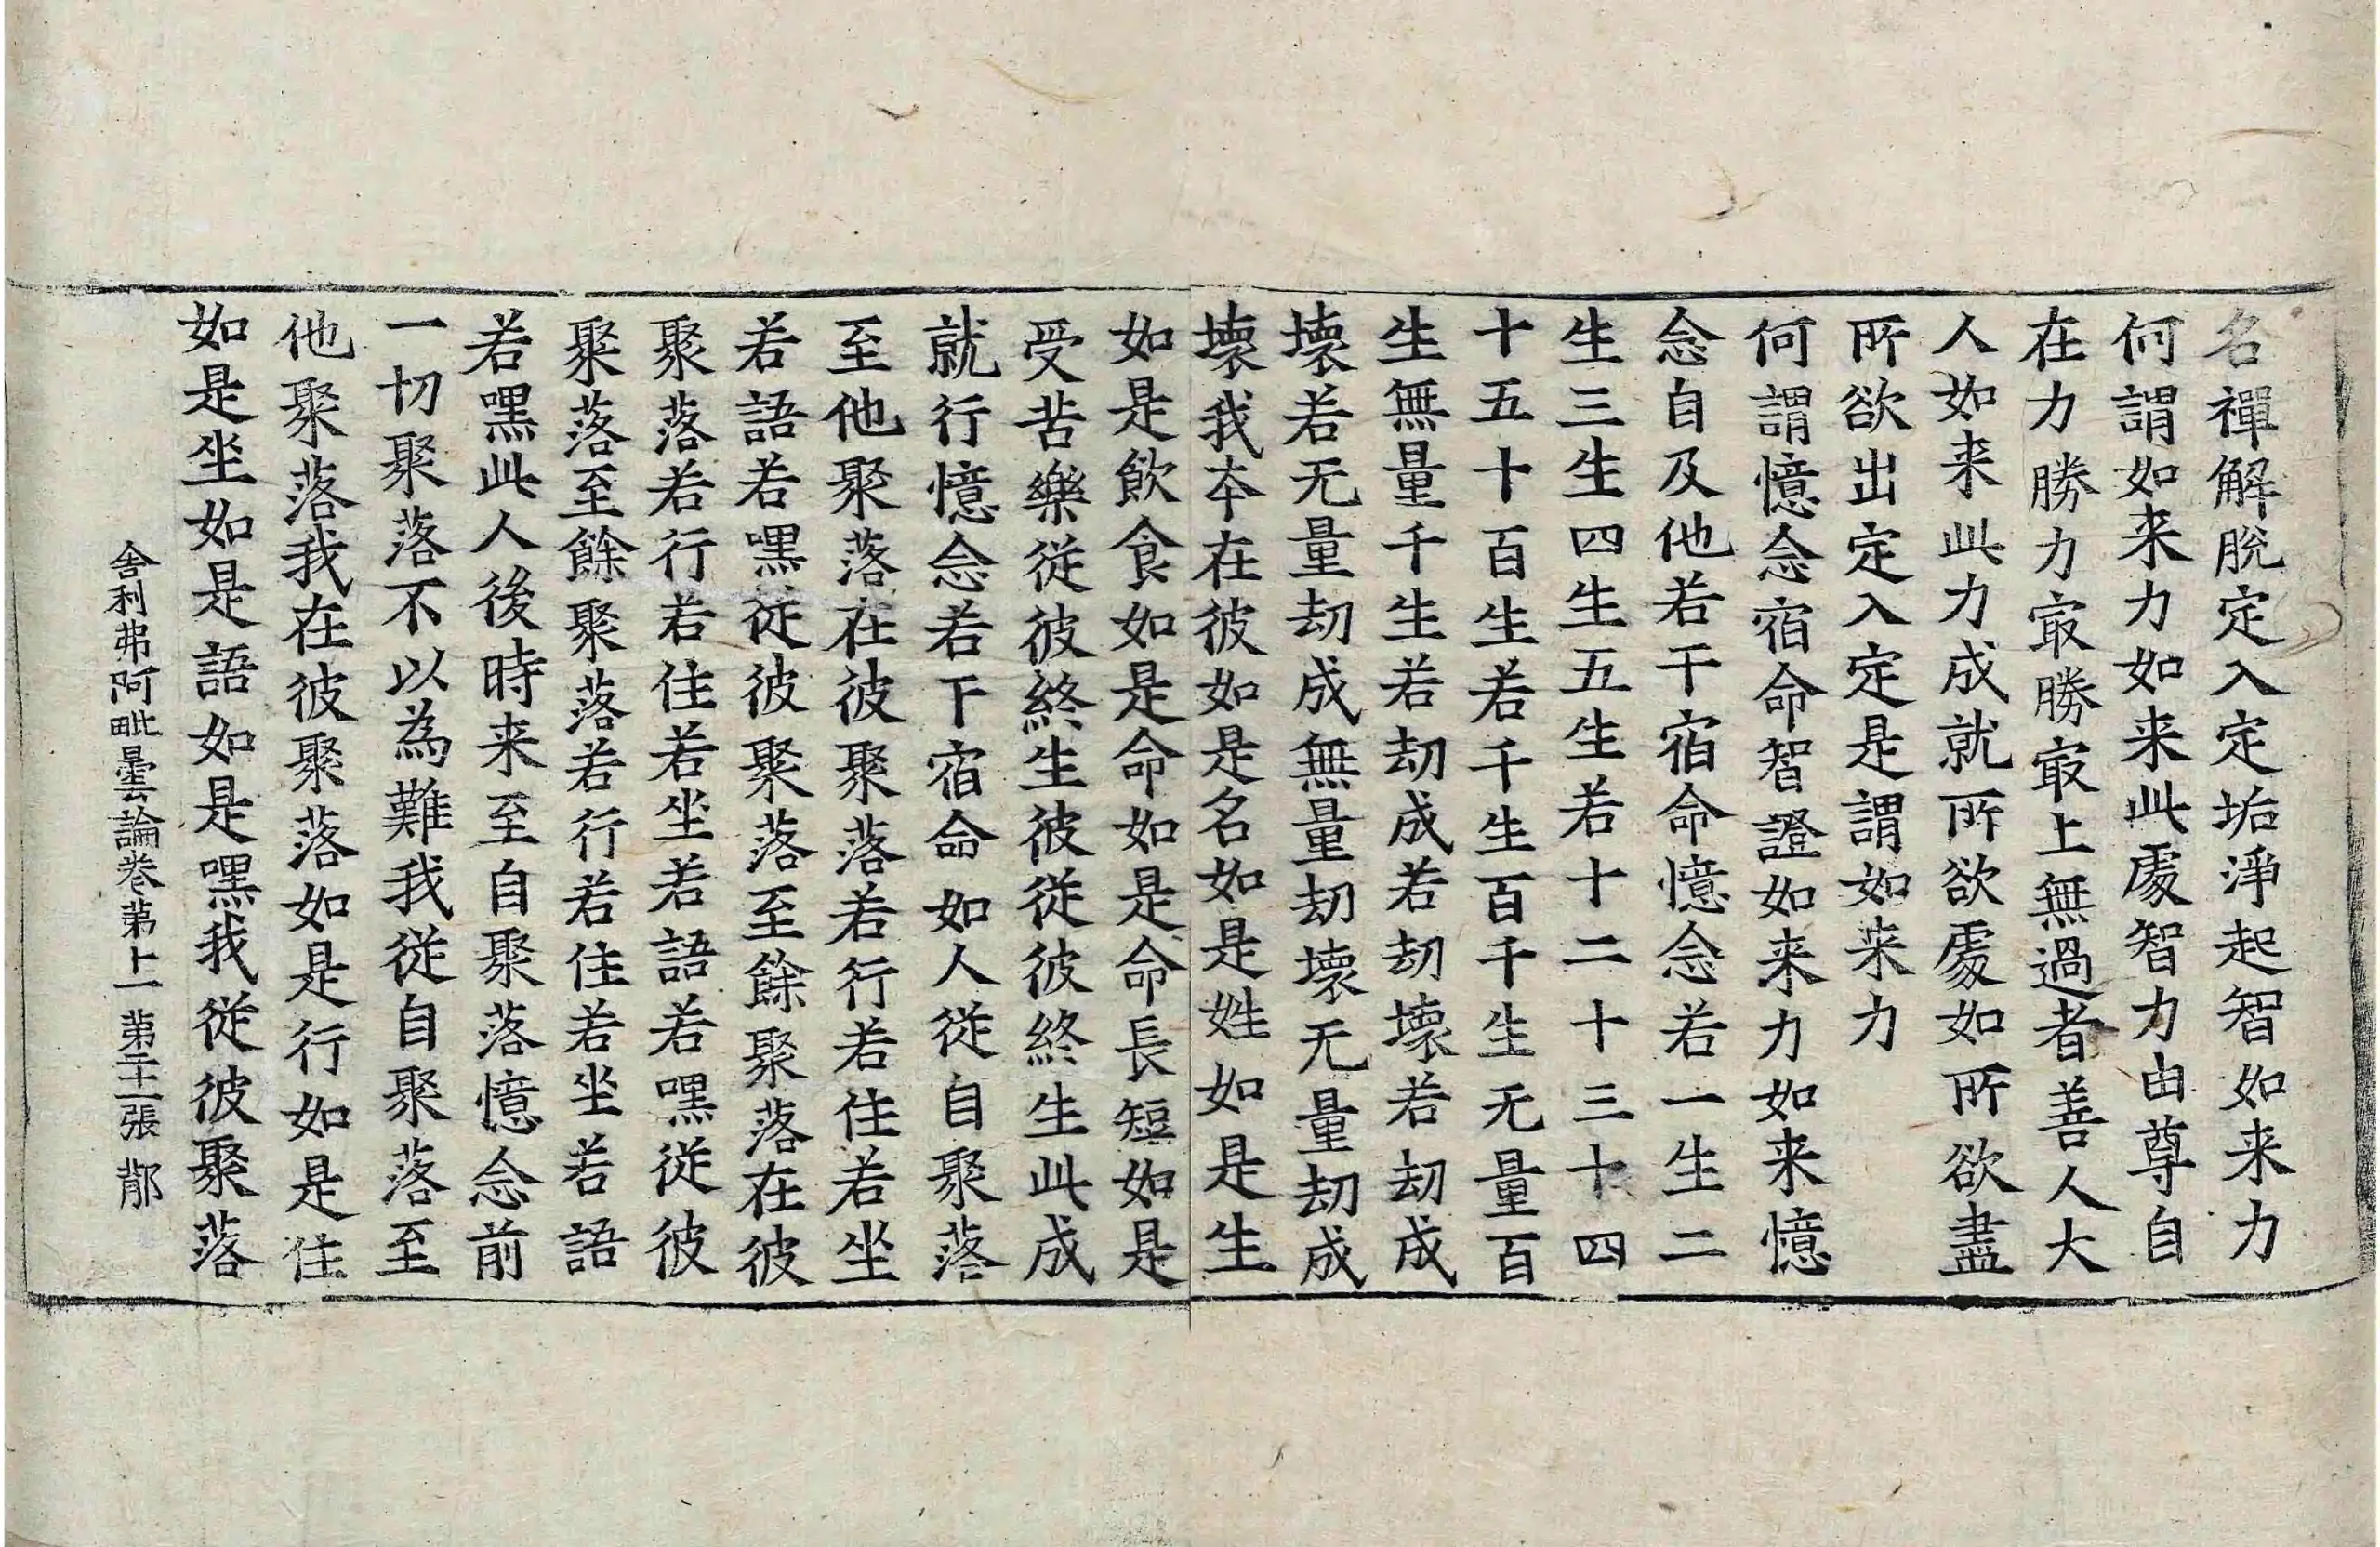 名禪解脫定入定垢淨起智如来力
何謂如来力如来此處智力由尊自
在力勝力㝡勝㝡上無過者善人大
人如来此力成就所欲處如所欲盡
所欲出定入定是謂如来力
何謂憶念宿命智證如来力如来憶
念自及他若干宿命憶念若一生二
生三生四生五生若十二十三十四
十五十百生若千生百千生无量百
生無量千生若劫成若劫壞若劫成
壞若无量劫成無量劫壞无量劫成
壞我本在彼如是名如是姓如是生
如是飲食如是命如是命長短如是
受苦樂從彼終生彼從彼終生此成
就行憶念若干宿命如人從自聚落
至他聚落在彼聚落若行若住若坐
若語若嘿從彼聚落至餘聚落在彼
聚落若行若住若坐若語若嘿從彼
聚落至餘聚落若行若住若坐若語
若嘿此人後時来至自聚落憶念前
一切聚落不以為難我從自聚落至
他聚落我在彼聚落如是行如是住
如是坐如是語如是嘿我從彼聚落
舍利弗阿毗曇論卷苐上一 苐二十一張 鄁